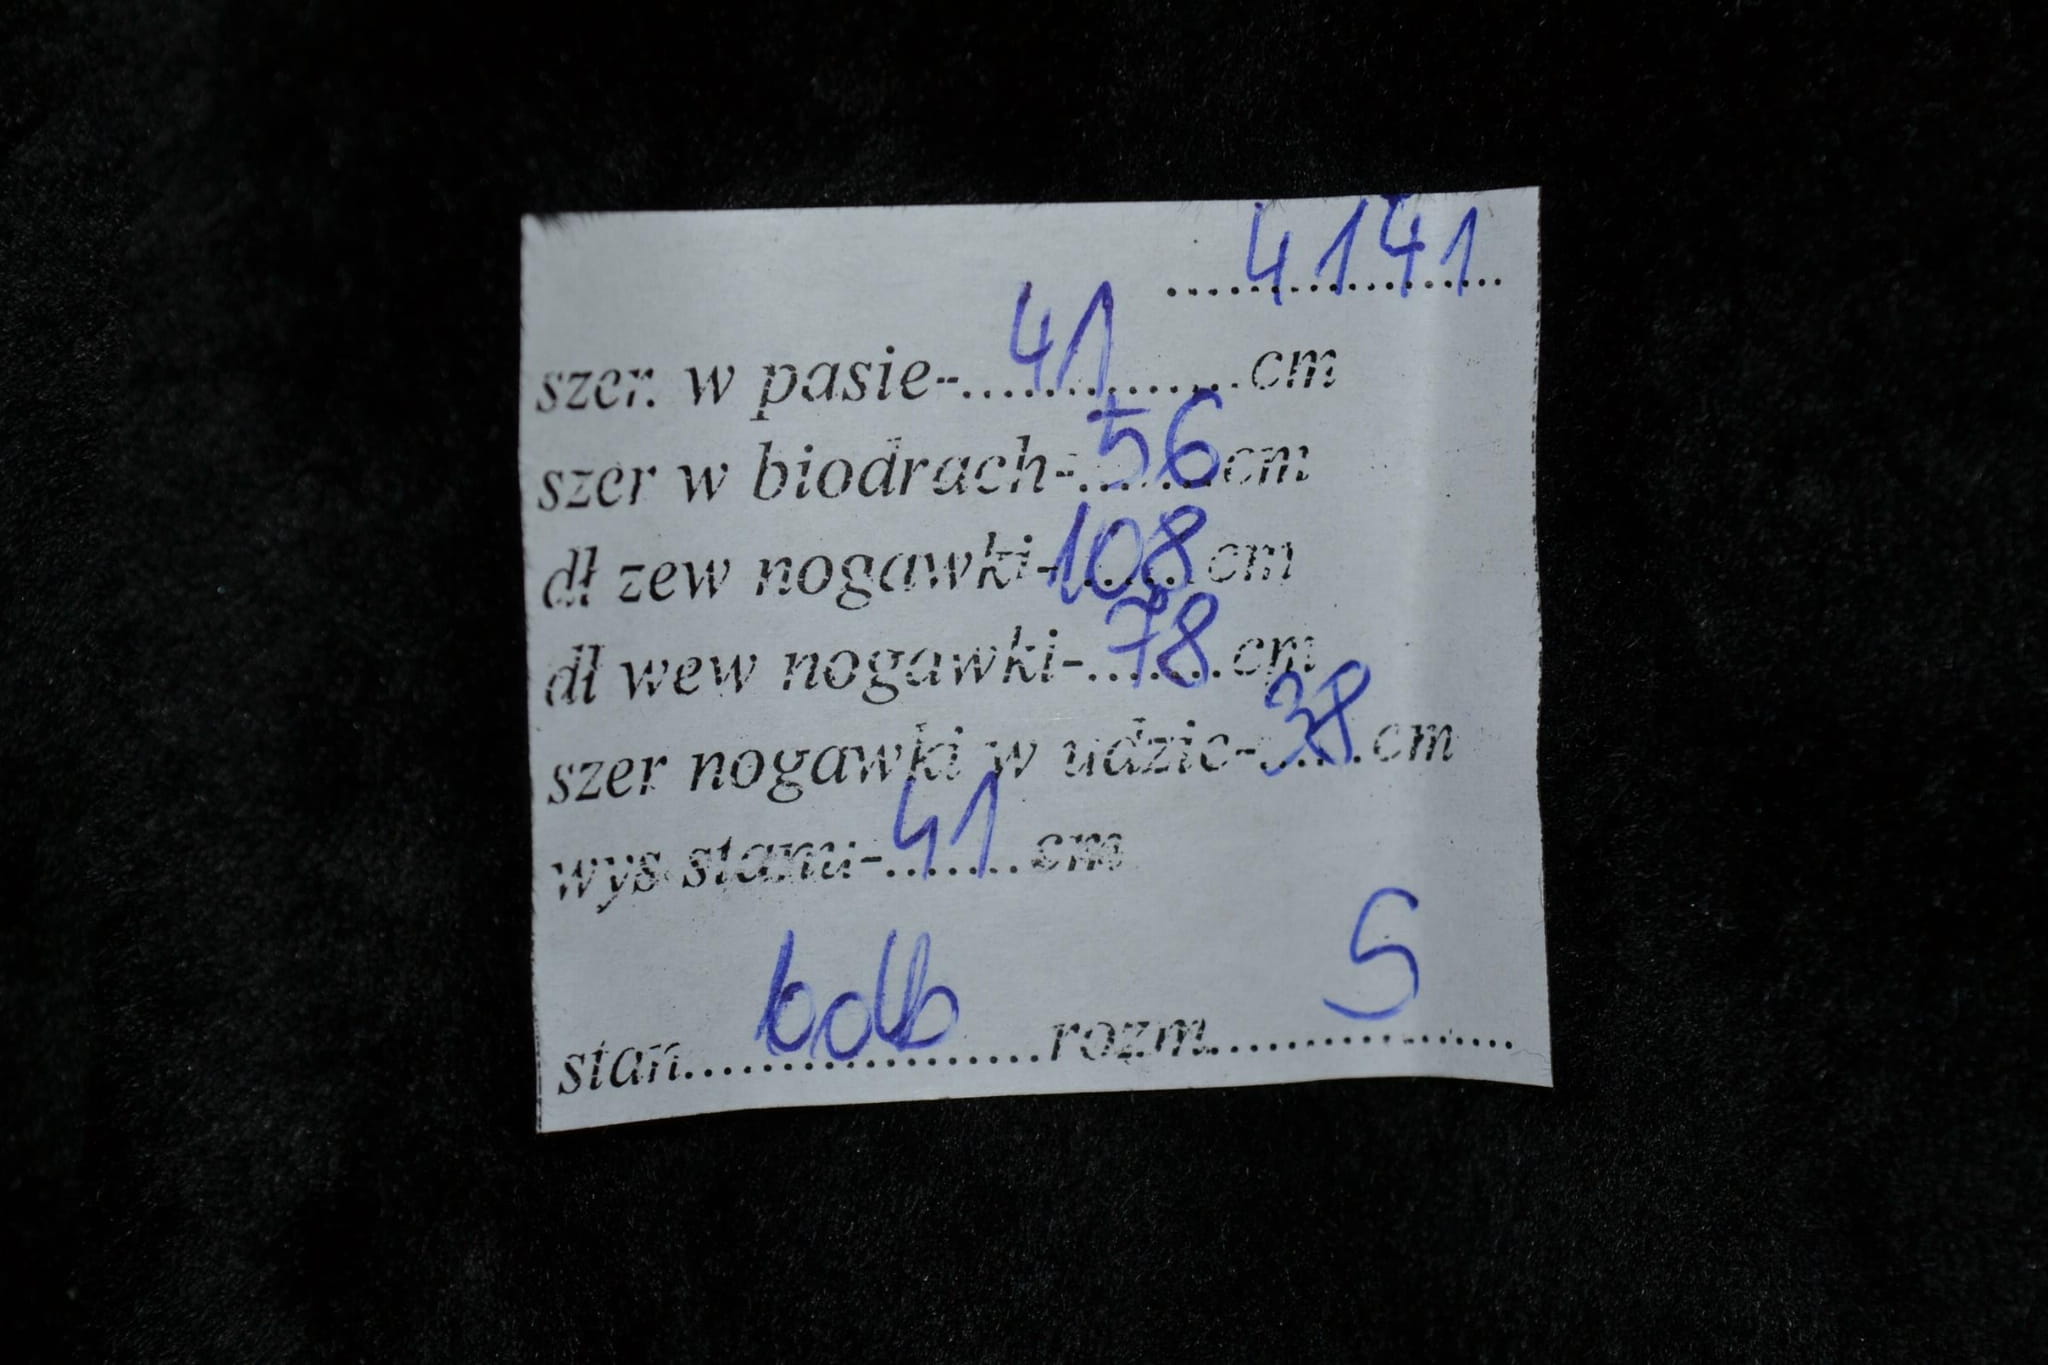 4141
szer. w pasie-...41...cm
szer w biodrach-...56...cm
dł zew nogawki-108...cm
dł wew nogawki-...78...cm
szer nogawki w udzie-...38...cm
wys stanu-...41...cm
stan...bdb...rozm...S...